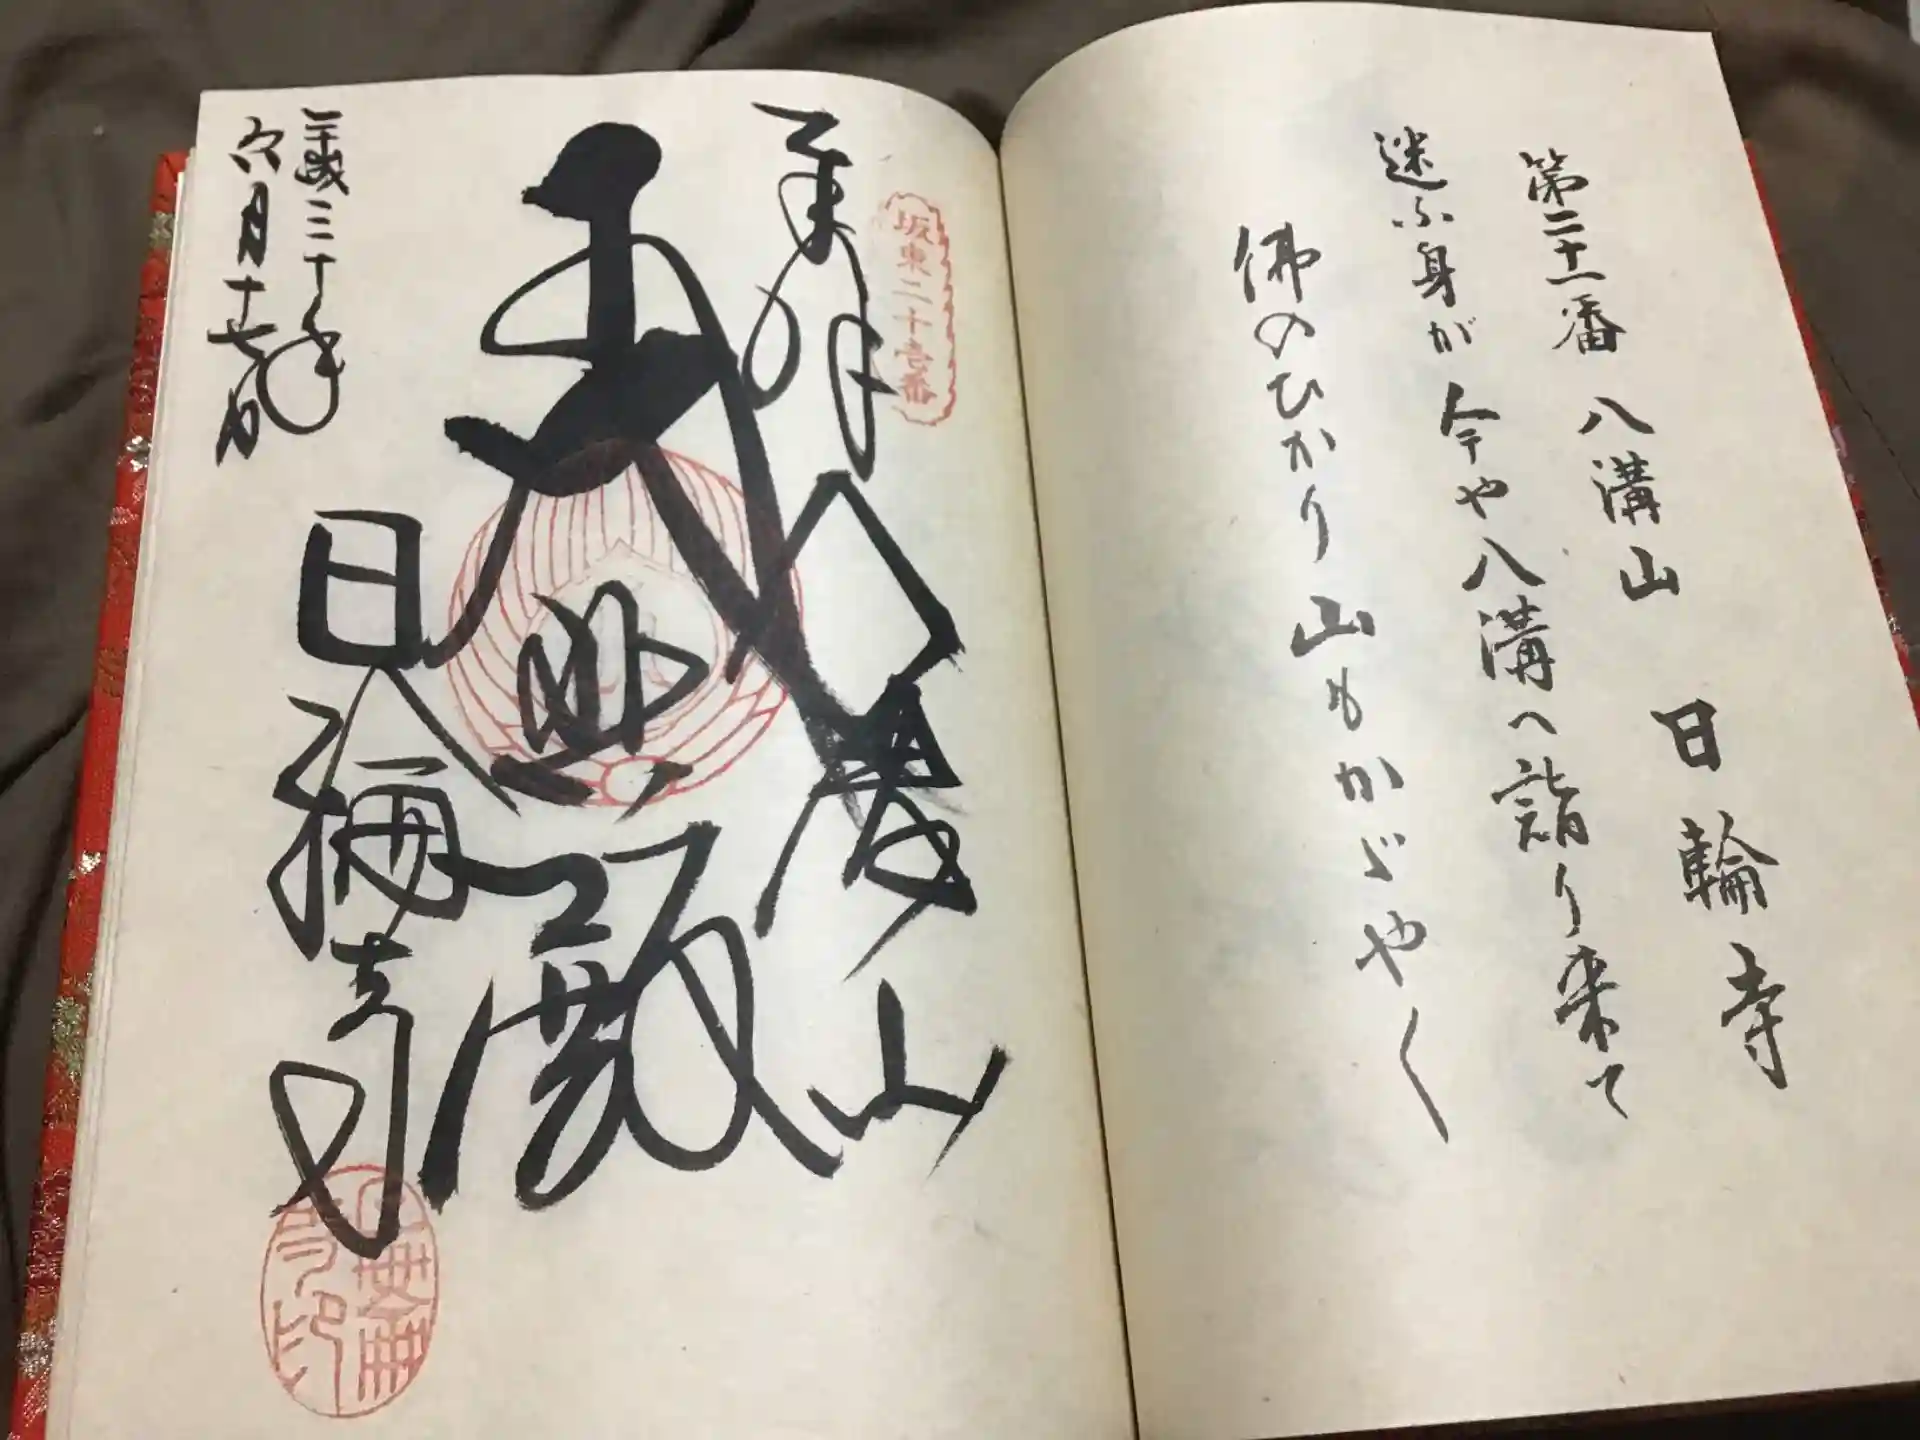 第二十一番 八溝山 日輪寺
迷ふ身が今や八溝へ詣り来て
佛のひかり山もかゞやく
坂東二十壱番
奉拝 八溝山
大悲殿
日輪寺
平成三十年
六月十七日